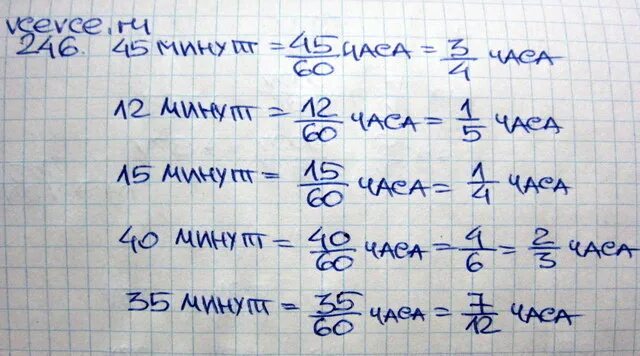 vsevce.ru
246. 45 минут = 45/60 часа = 3/4 часа
12 минут = 12/60 часа = 1/5 часа
15 минут = 15/60 часа = 1/4 часа
40 минут = 40/60 часа = 4/6 = 2/3 часа
35 минут = 35/60 часа = 7/12 часа